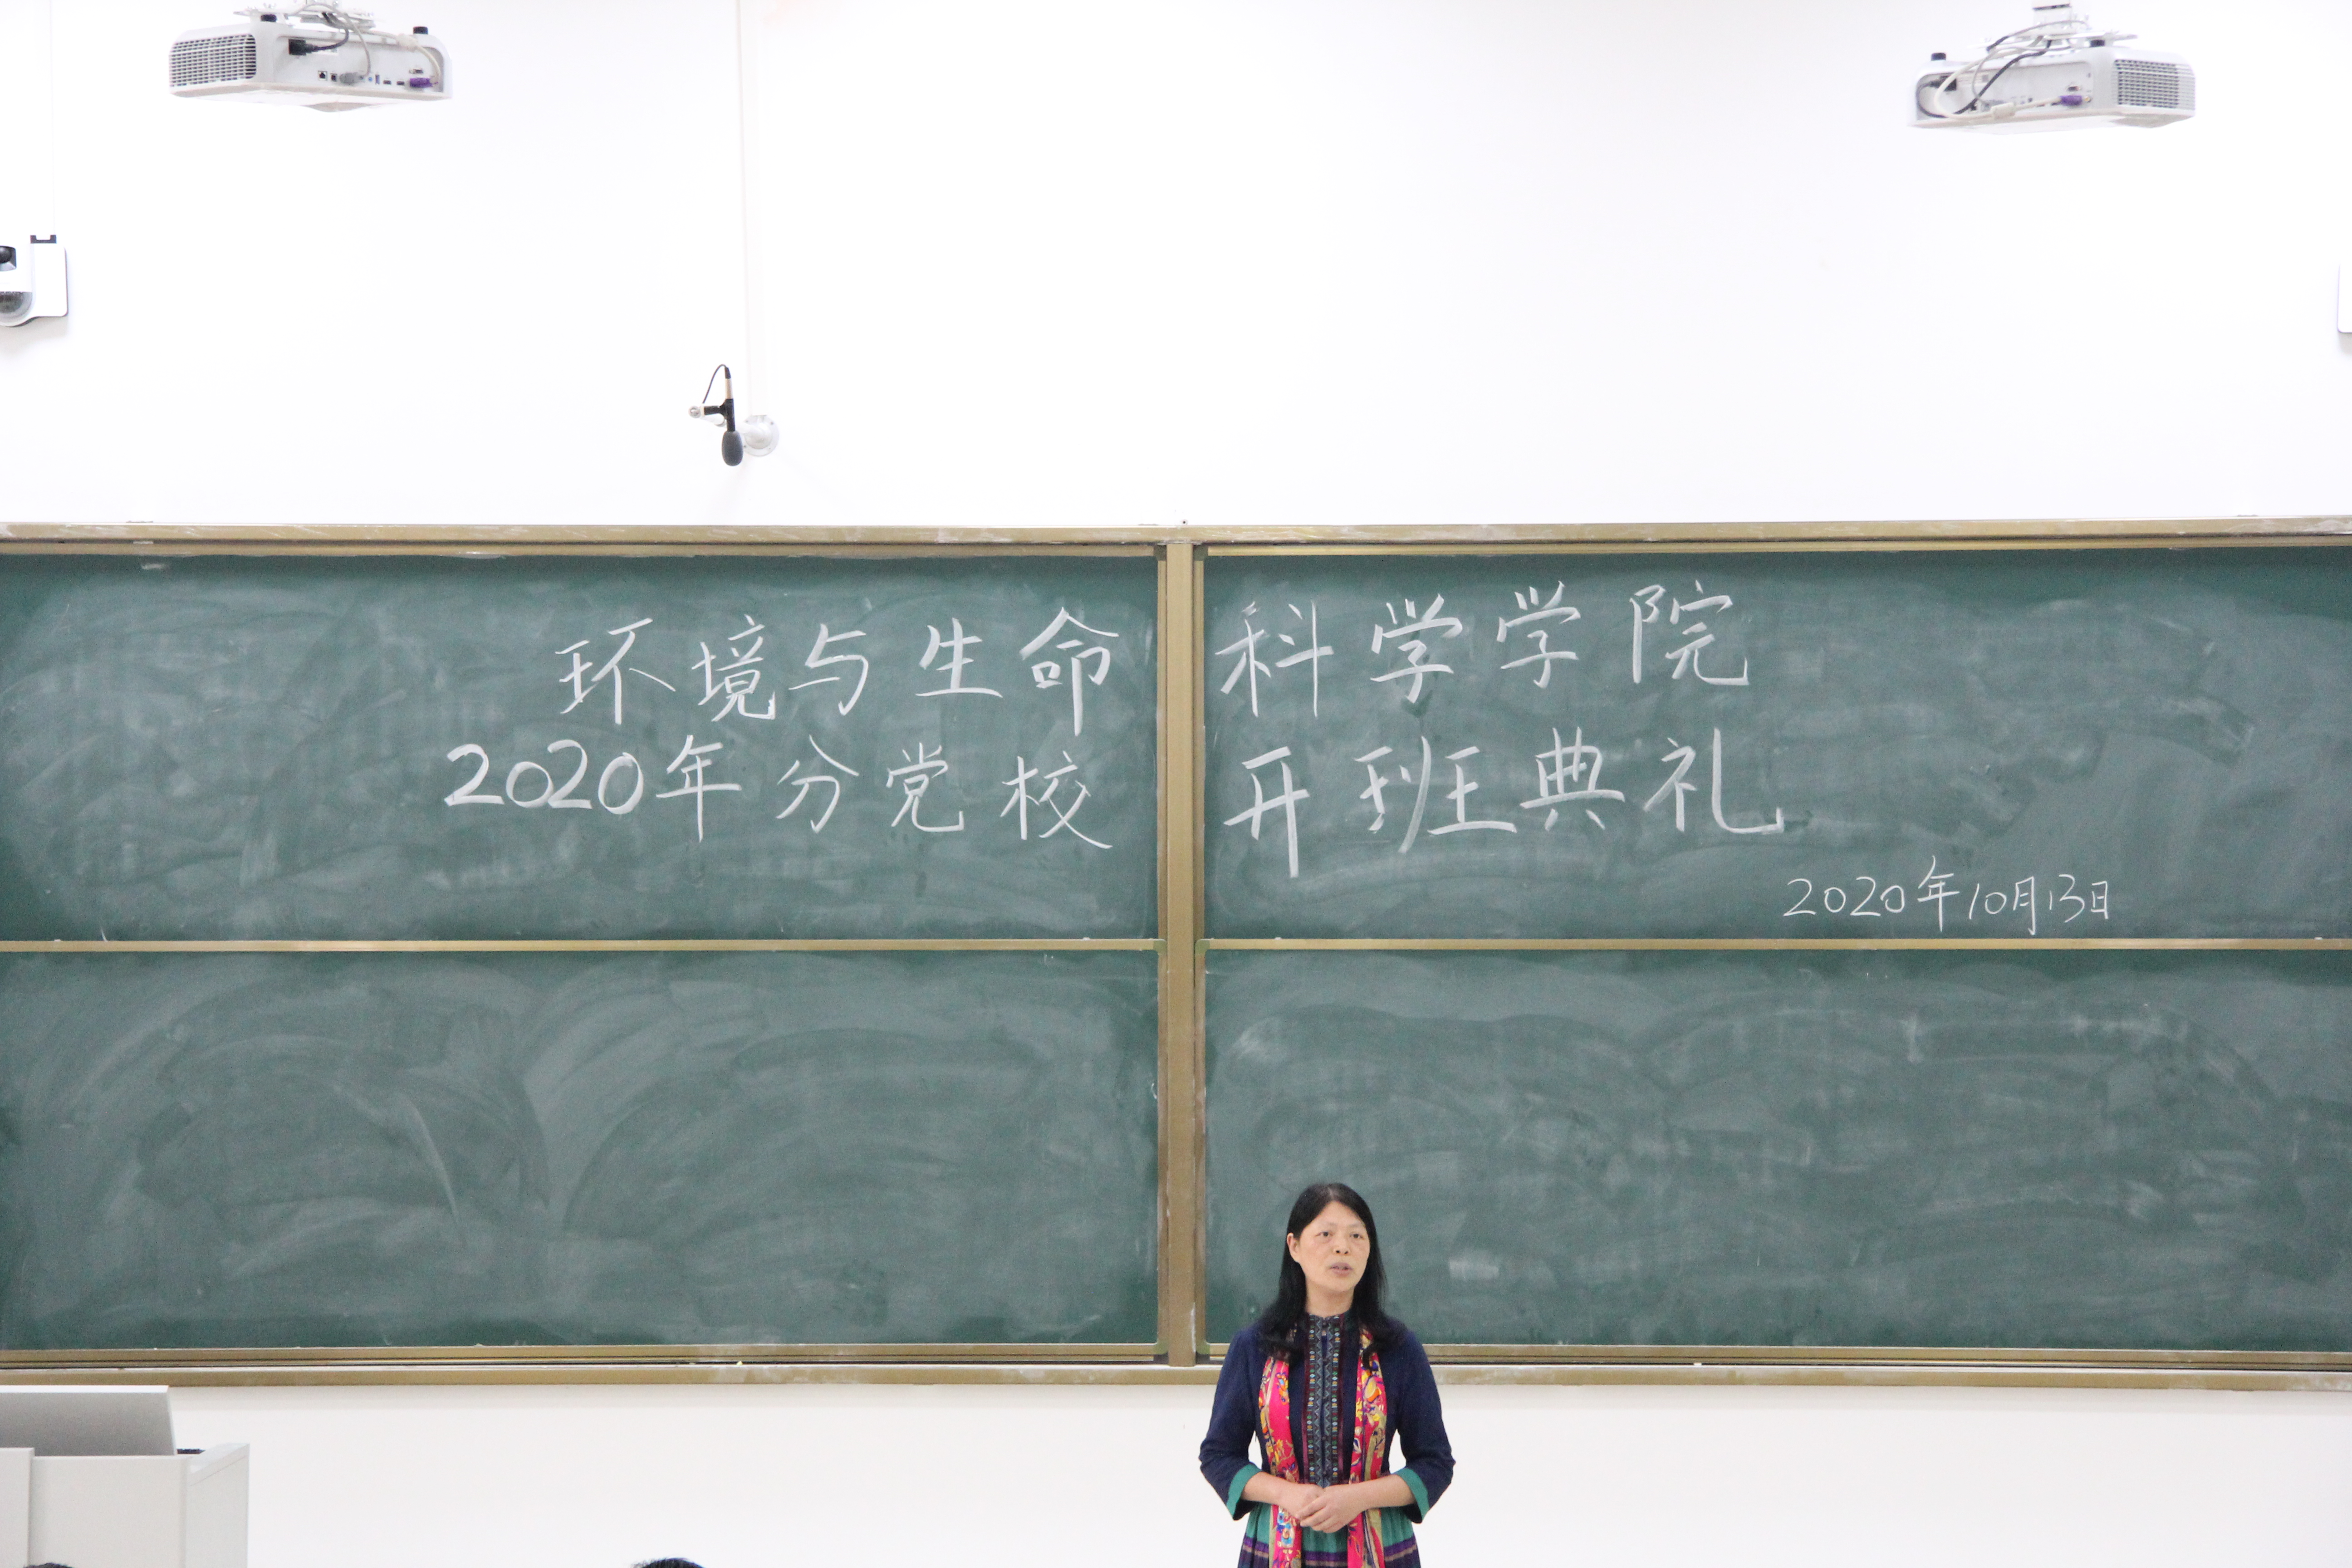 环境与生命科学学院
2020年分党校开班典礼
2020年10月13日